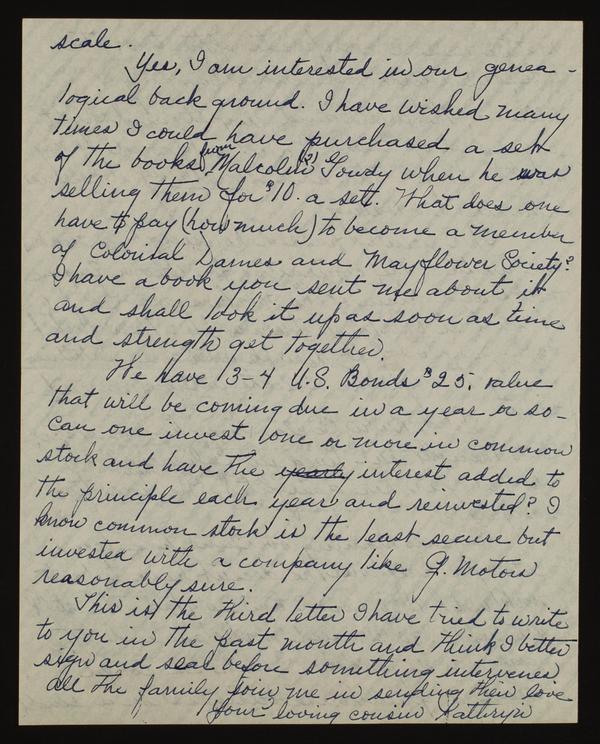 scale.
Yes, I am interested in our genea-
logical back ground. I have wished many
times I could have purchased a sett
of the books from Malcolm (?) Gowdy when he was
selling them for $10. a sett. What does one
have to pay (how much) to become a member
of Colonial Dames and Mayflower Society?
I have a book you sent me about it
and shall look it up as soon as time
and strength get together.
We have 3-4 U.S. Bonds $25. value
that will be coming due in a year or so-
Can one invest one or more in common
stock and have the yearly interest added to
the principle each year and reinvested? I
know common stock is the least secure but
invested with a company like G. Motors
reasonably sure.
This is the third letter I have tried to write
to you in the past month and think I better
sign and seal before something intervenes
all the family join me in sending their love
Your loving cousin Kathryn